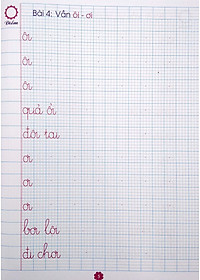 Bài 4: Vần ôi - ơi
ôi
ôi
ôi
quả ổi
đôi tai
ơi
ơi
ơi
bơi lội
đi chơi